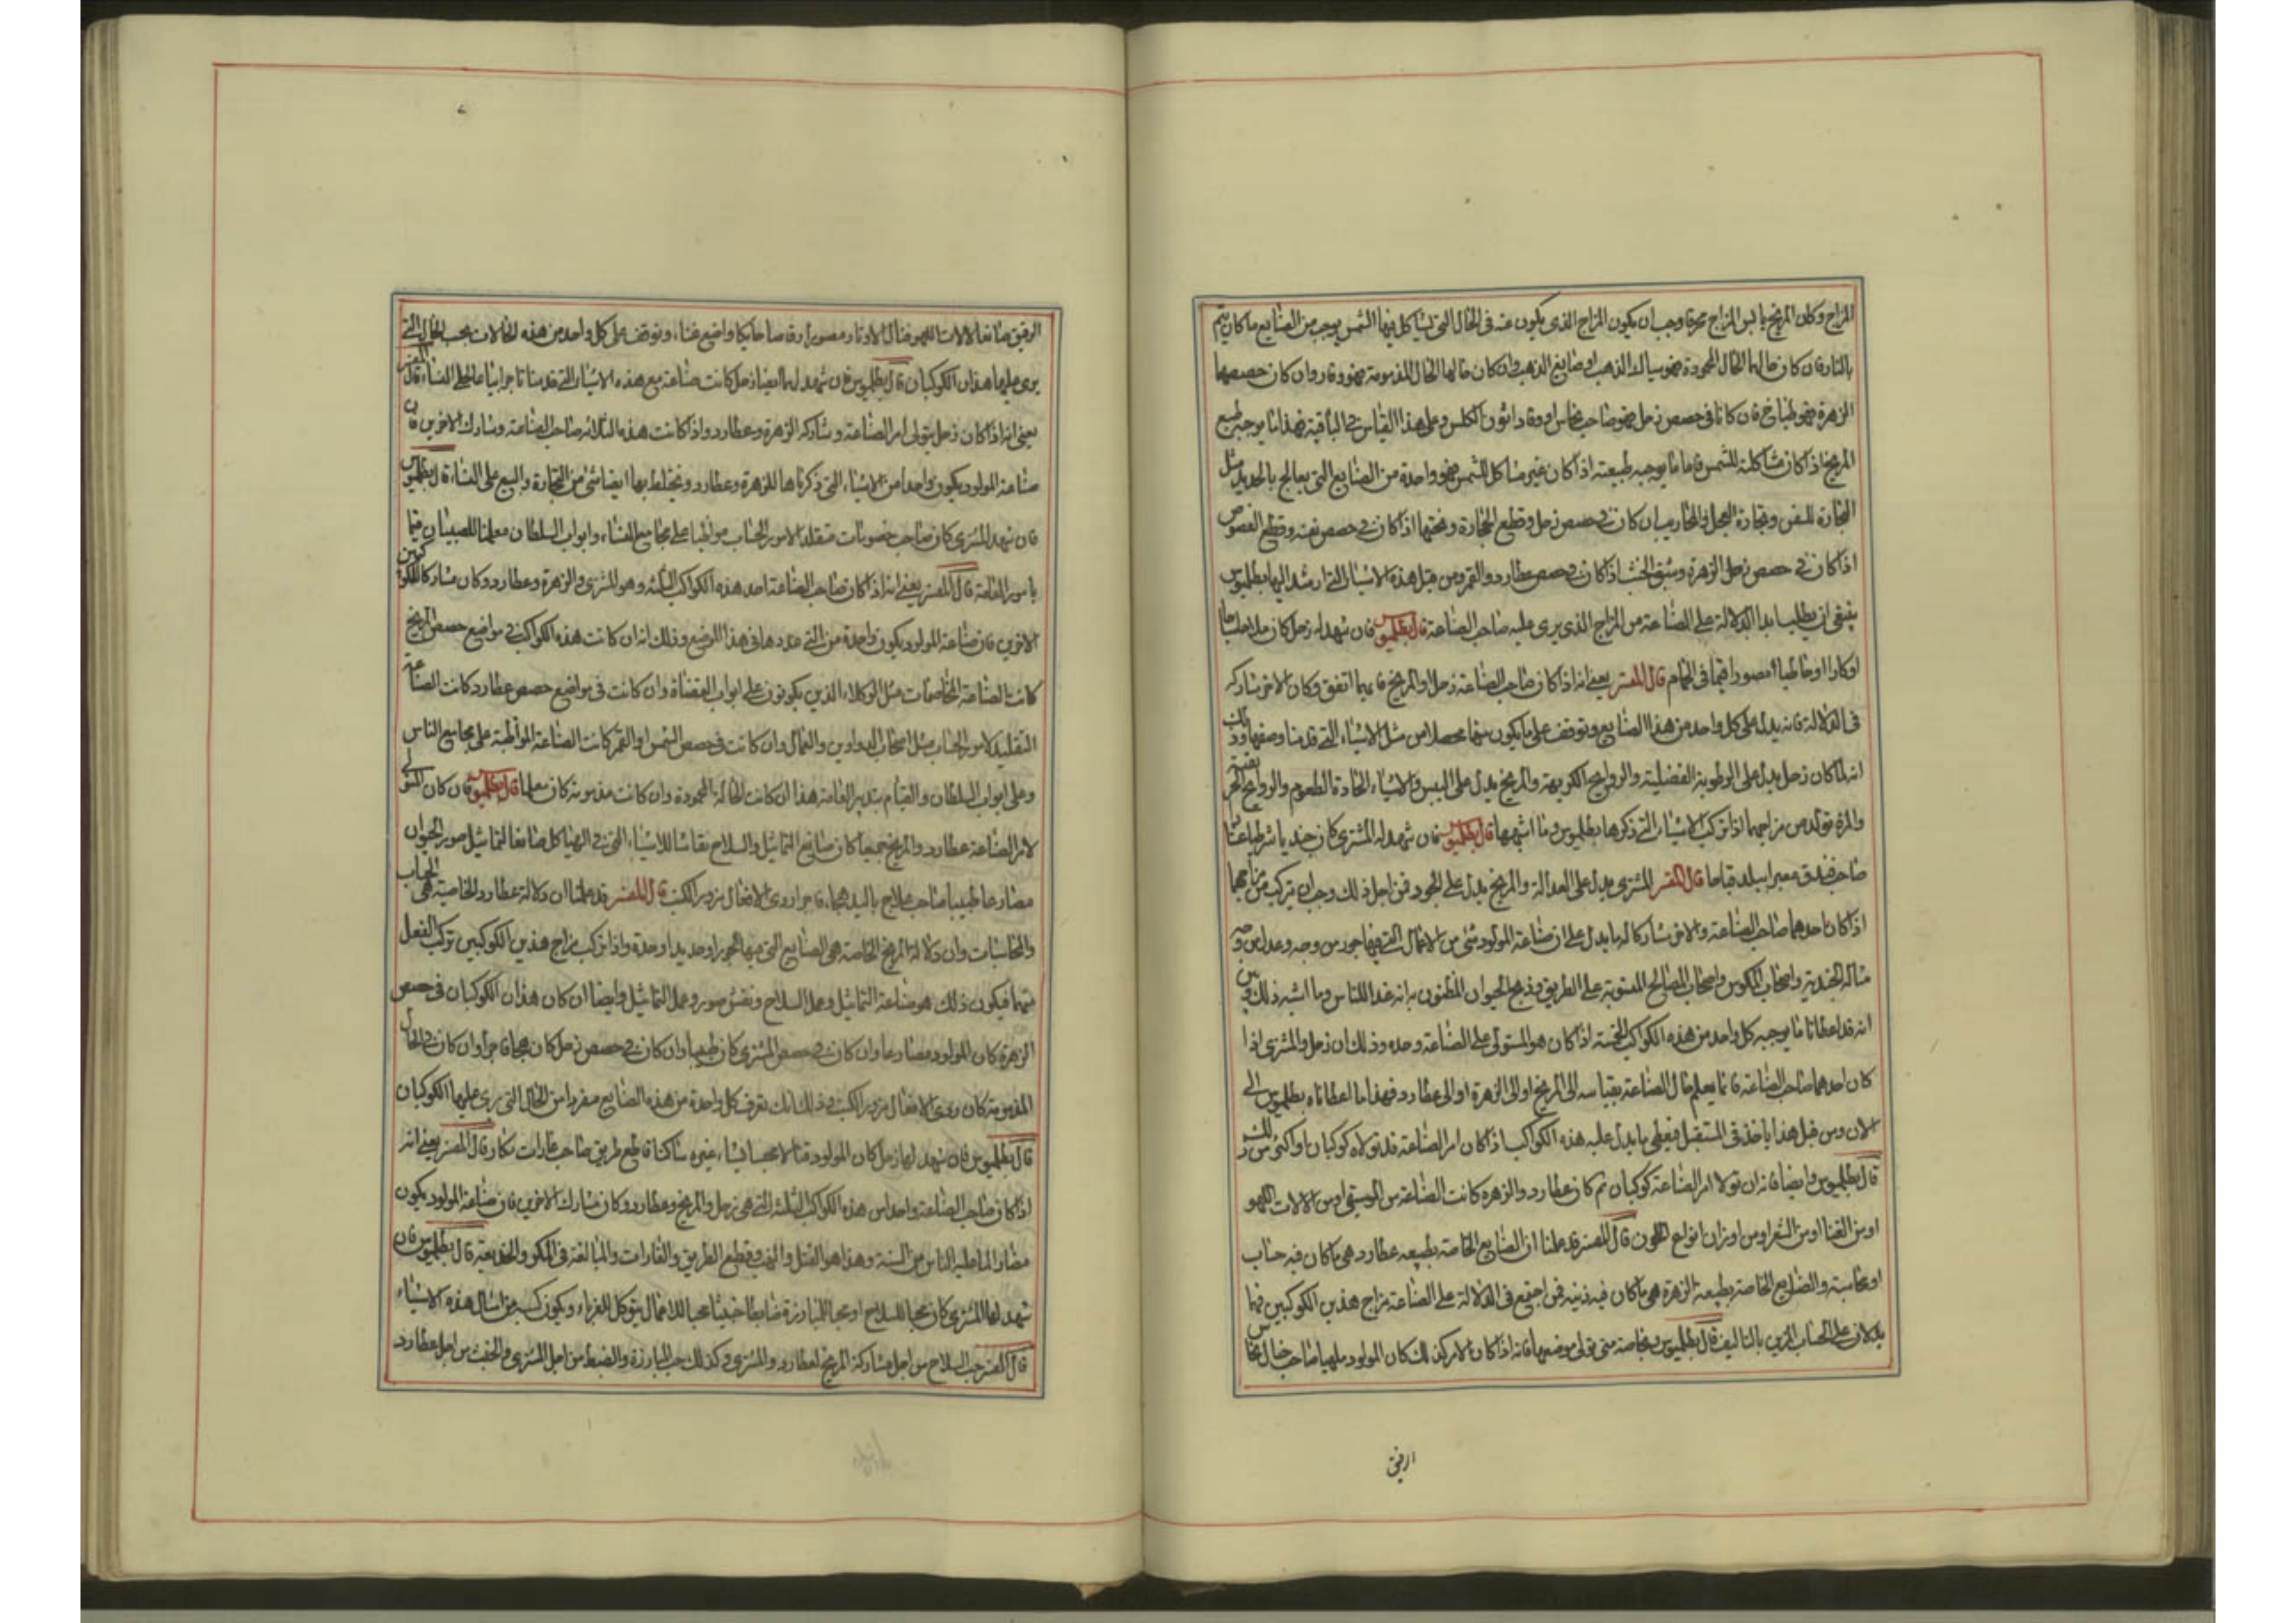 المزاج وكان المريخ يابس المزاج محرقا وجب ان يكون المزاج الذى يكون عنه فى الحال التى يشاكل فيها الشمس يوجب من الصنايع ما كان يتم
بالنار فان كان حالها الحال المحمودة فهو سباك الذهب او صايغ الذهب وان كان حالها الحال المذمومة فهو وقاد وان كان حصصها
الزهرة فهو طباخ فان كانا فى حصص زحل فهو صاحب نحاس او وقاد اتون الكلس وعلى هذا القياس فى الباقية فهذا ما يوجبه طبع
المريخ اذا كان مشاكلته للشمس فاما ما يوجبه طبيعته اذا كان غير مشاكل للشمس فهو واحدة من الصنايع التى يعالج بالحديد مثل
النجارة للسفن ونجارة العجل والمحاريب ان كان فى حصص زحل وقطع الحجارة ونحتها اذا كان فى حصص نفسه وقطع الفصوص
اذا كان فى حصص زحل الزهرة وشق الخشب اذا كان فى حصص عطارد والقمر ومن قبل هذه الاشياء التى ارشد اليها بطلميوس
ينبغى ان يطلب ابدا الدلالة على الصناعة من المزاج الذى يرى عليه صاحب الصناعة قال بطلميوس فان شهد له زحل كان ملاحا
او كارا او حائطيا مصورا قيما فى الحمام قال المفسر يعنى انه اذا كان صاحب الصناعة زحل او المريخ فايهما اتفق وكان الاخر شاركه
فى الدلالة فانه يدل على كل واحد من هذا الصنايع وتوقف على ما يكون منهما محصلا من مثل الاشياء التى قدمنا وصفها وذلك
انه لما كان زحل يدل على الرطوبة الفضلية والروايح الكريهة والمريخ يدل على اليبس والاشياء الحادة الطعوم والروايح
والمرة تولد من مزاجهما اذا تركب الاشياء التى ذكرها بطلميوس وما اشبهها قال بطلميوس فان شهد له المشترى كان جنديا شرطيا
صاحب فندق معبرا قال المفسر المشترى يدل على العدالة والمريخ يدل على الجور فمن اجل ذلك وجب ان يتركب من مزاجهما
اذا كان احدهما صاحب الصناعة والاخر مشاركا له ما يدل على ان صناعة المولود شئ من الاعمال التى فيها جور من وجه وعدل من وجه
مثاله الجندية واصحاب المكوس واصحاب المصالح المنسوبة على الطريق وذبح الحيوان المظنون به انه غذا للناس وما اشبه ذلك وبين
انه قد اعطانا ما يوجبه كل واحد من هذه الكواكب الخمسة اذا كان هو المستولى على الصناعة وحده وذلك ان زحل والمشترى اذا
كان احدهما صاحب الصناعة فانا يعلم حال الصناعة بقياسه الى المريخ او الى الزهرة او الى عطارد فهذا ما اعطاناه بطلميوس الى
الان ومن قبل هذا ياخذ فى المستقبل فيعطى ما يدل عليه هذه الكواكب اذا كان امر الصناعة قد تولاه كوكبان او اكثر من ذلك
قال بطلميوس وايضا فانه ان تولا امر الصناعة كوكبان ثم كان عطارد والزهرة كانت الصناعة من الموسيقى او من الالات اللهو
او من الغنا او من الشعر او من اوزان انواع اللحون قال المفسر قد علمنا ان الصنايع الخاصة بطبيعة عطارد هى ما كان فيه حساب
او محاسبة والصنايع الخاصة بطبيعة الزهرة هى ما كان فيه زينة فمن اجتمع فى الدلالة على الصناعة مزاج هذين الكوكبين فهما
يدلان على الحساب المزين بالتاليف قال بطلميوس وبخاصة متى تولى موضعهما فانه اذا كان الامر كذلك كان المولود ملهيا صاحب خيال
ارفق
الرفيق صانعا لالات اللهو ضال الاوتار مصورا رقاصا حايكا واضع غناء ونوقف على كل واحد من هذه الحالات بحسب الحال التى
يرى عليها هذان الكوكبان قال بطلميوس فان شهد لهما ايضا زحل كانت صناعته مع هذه الاشياء التى قدمنا تاجرا بيا على النساء قال المفسر
يعنى انه اذا كان زحل يتولى امر الصناعة وشاركه الزهرة وعطارد واذا كانت هذه الثلاثة صاحب الصناعة وشارك الاخرين فان
صناعة المولود يكون واحدا من الاشياء التى ذكرناها للزهرة وعطارد ويختلط بها ايضا شئ من التجارة والبيع على النساء قال بطلميوس
فان شهد المشترى كان صاحب خصومات متقلدا لامور الحساب مواظبا على مجامع النساء وابواب السلطان معلما للصبيان قيما
بامور العامة قال المفسر يعنى انه اذا كان صاحب الصناعة احد هذه الكواكب الثلثة وهو المشترى والزهرة وعطارد وكان مشاركا للكوكبين
الاخرين فان صناعة المولود يكون واحدة من التى عددها فى هذا الموضع وذلك انه ان كانت هذه الكواكب فى مواضع حصص المريخ
كانت الصناعة المخاصمات مثل الوكلاء الذين يكونون على ابواب القضاة وان كانت فى مواضع حصص عطارد كانت الصناعة
التقليد لامور الحساب مثل اصحاب الدواوين والعمال وان كانت فى حصص الشمس او القمر كانت الصناعة المواظبة على مجامع الناس
وعلى ابواب السلطان والقيام بتدبير العامة هذا ان كانت الحالة المحمودة وان كانت مذمومة كان معلما قال بطلميوس فان كان المتولى
لامر الصناعة عطارد والمريخ جميعا كان صانع التماثيل والسلاح نقاشا للاشياء التى فى الهياكل صانعا لتماثيل صور الحيوان
مصارعا طبيبا صاحب علاج باليد فاجرا ردى الافعال مزور الكتب قال المفسر قد علمنا ان دلالة عطارد الخاصية هى الحساب
والمحاسبات وان دلالة المريخ الخاصة هى الصنايع التى فيها جور او حديد او حدة واذا تركب مزاج هذين الكوكبين تركب الفعل
منهما فيكون ذلك هو صناعة التماثيل وعمل السلاح ونقش صور وعمل التماثيل وايضا ان كان هذان الكوكبان فى حصص
الزهرة كان المولود مصارعا وان كان فى حصص المشترى كان طبيبا وان كان فى حصص زحل كان فاجرا وان كان فى الحال
المذمومة كان ردى الافعال مزور الكتب فى ذلك انك تعرف كل واحدة من هذه الصنايع مفردا من الحال التى يرى عليها الكوكبان
قال بطلميوس فان شهد لهما زحل كان المولود قتالا غيره قاطع طريق صاحب غارات مكار قال المفسر يعنى انه
اذا كان صاحب الصناعة واحدا من هذه الكواكب الثلثة التى هى زحل والمريخ وعطارد وكان مشارك الاخرين فان صناعة المولود يكون
وهذا هو القتل والنهب وقطع الطريق والغارات والمبالغة فى المكر والخديعة قال بطلميوس فان
شهد لهما المشترى كان محبا للسلاح او محبا للمبارزة ضابطا خبيثا محبا للاعمال يتوكل للغرباء ويكون كسبه من امثال هذه الاشياء
قال المفسر حب السلاح من اجل مشاركة المريخ لعطارد والمشترى وكذلك حب المبارزة والضبط من اجل المشترى والخبث من اجل عطارد